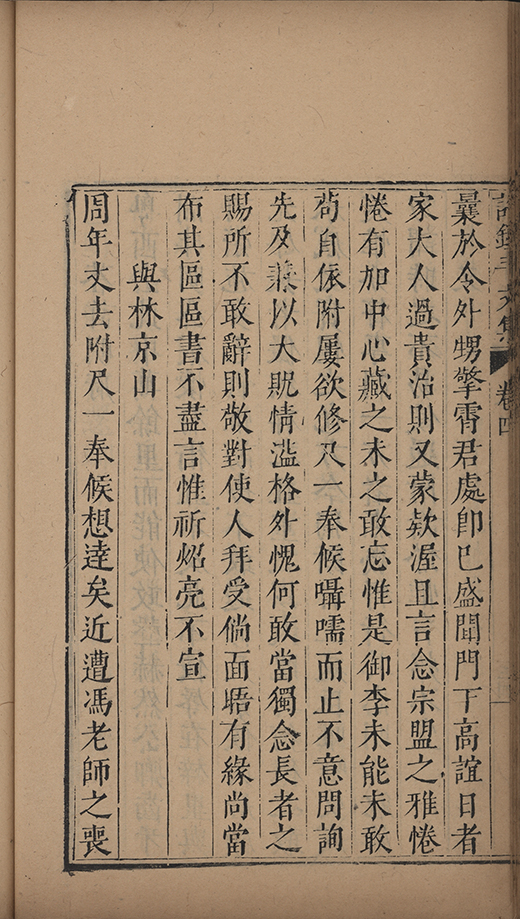 卷四
曩於令外甥擎霄君處卽已盛聞門下高誼日者
家大人過貴治則又蒙欵渥且言念宗盟之雅惓
惓有加中心藏之未之敢忘惟是御李未能未敢
茍自依附屢欲修尺一奉候囁嚅而止不意問詢
先及兼以大貺情溢格外愧何敢當獨念長者之
賜所不敢辭則敬對使人拜受倘面晤有緣尚當
布其區區書不盡言惟祈炤亮不宣
與林京山
周年丈去附尺一奉候想逹矣近遭馮老師之喪